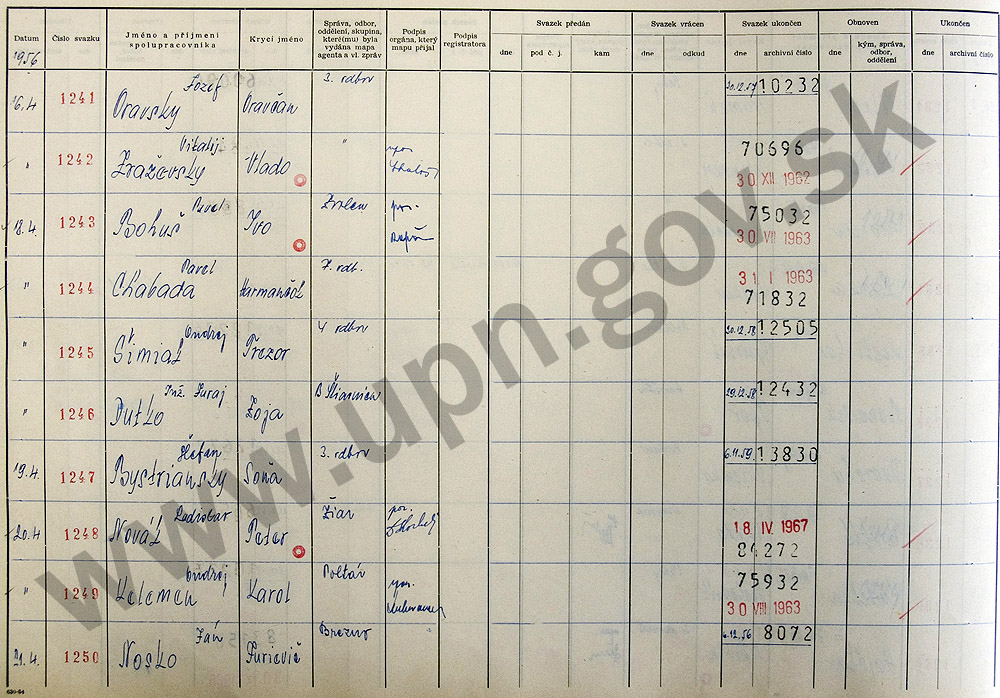 Datum Číslo svazku Jméno a příjmení spolupracovníka Krycí jméno Správa, odbor, oddělení, skupina, které(mu) byla vydána mapa agenta a vl. zpráv Podpis orgána, který mapu přijal Podpis registratora Svazek předán Svazek vrácen Svazek ukončen Obnoven Ukončen
dne pod č. j. kam dne odkud dne archivní číslo dne kým, správa, odbor, oddělení dne archivní číslo
1956
16.4 1241 Jozef Oravsky Oravčan 3. odbor 20.12.57 10232
" 1242 Vitalij Zražovsky Vlado " 70696
30 XII 1962
18.4. 1243 Pavel Bohuš Ivo Zvolen por. 75032
30 VII 1963
" 1244 Pavel Chabada Harmančok 7. odb. 31 I 1963
71832
" 1245 Ondrej Simiak Trezor 4 odbor 20.12.58 12505
" 1246 Inž. Juraj Dutko Zoja B Štiavnica 29.12.58 12432
19.4. 1247 Štefan Bystriansky Soňa 3. odbor 6.11.59 13830
20.4 1248 Ladislav Novák Peter Žiar por. 18 IV. 1967
84272
" 1249 Ondrej Kelemen Karol Poltár por. 75932
30 VIII 1963
21.4. 1250 Ján Nosko Jurievič Brezno " 6.12.56 8072
www.upn.gov.sk